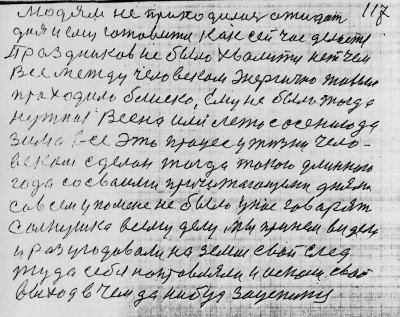 Людям не приходилось ожидать 117
дня ему готовить как сейчас делает
Праздников не было хвалить нет чем
Все между человеком энергично
проходило близко, Ему не было тогда
нужны Весна или лето с осенью да
зима Все это процес у жизни чело-
веком сделан тогда такого длинного
года со своими причитающими днями
совсем у помине не было у нас говарят
Солнушка всему делу мы при нем видели
и разугодовали на земле свой след
туда себя направляли и искали свой
выход в чем да нибуд зацепить